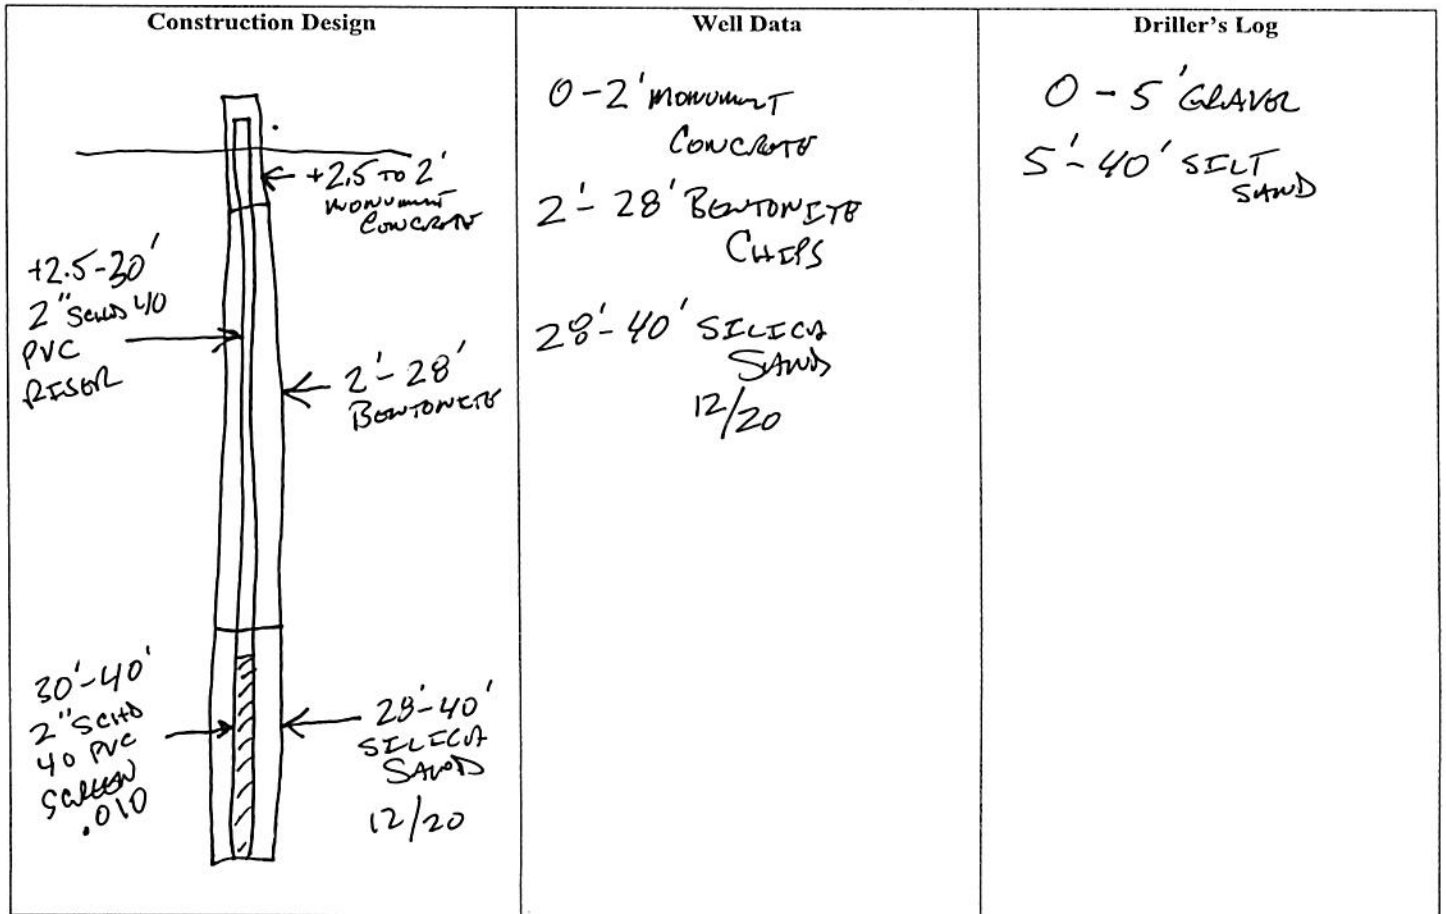 Construction Design
+2.5 TO 2'
MONUMENT
CONCRETE
+2.5-30'
2" SCHD 40
PVC
RISER
2'-28'
BENTONITE
30'-40'
2" SCHD
40 PVC
SCREEN
.010
28'-40'
SILICA
SAND
12/20
Well Data
0-2' MONUMENT
CONCRETE
2'-28' BENTONITE
CHIPS
28'-40' SILICA
SAND
12/20
Driller's Log
0-5' GRAVEL
5'-40' SILT
SAND